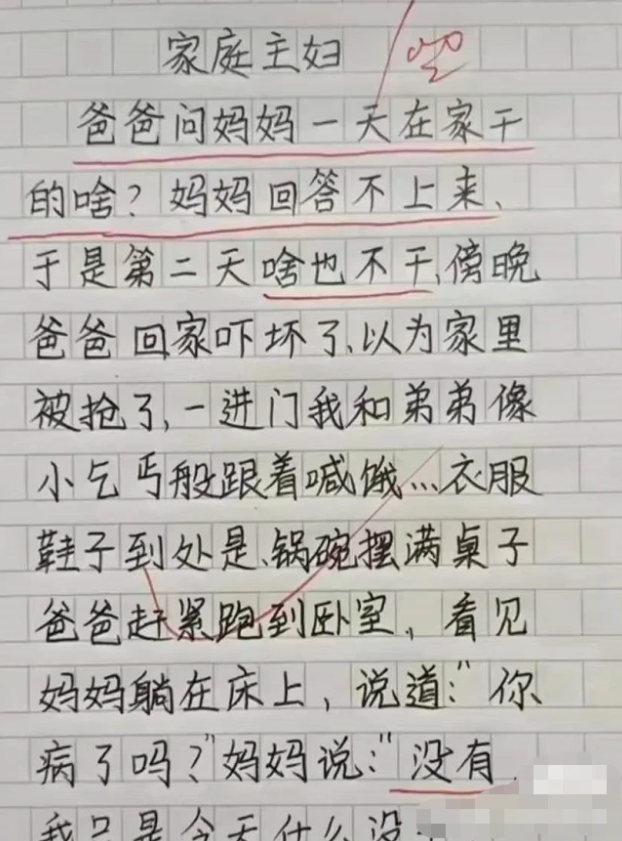 家庭主妇
爸爸问妈妈一天在家干
的啥？妈妈回答不上来、
于是第二天啥也不干、傍晚
爸爸回家吓坏了、以为家里
被抢了，一进门我和弟弟像
小乞丐般跟着喊饿…衣服
鞋子到处是、锅碗摆满桌子
爸爸赶紧跑到卧室，看见
妈妈躺在床上，说道："你
病了吗？"妈妈说："没有，
我只是今天什么没